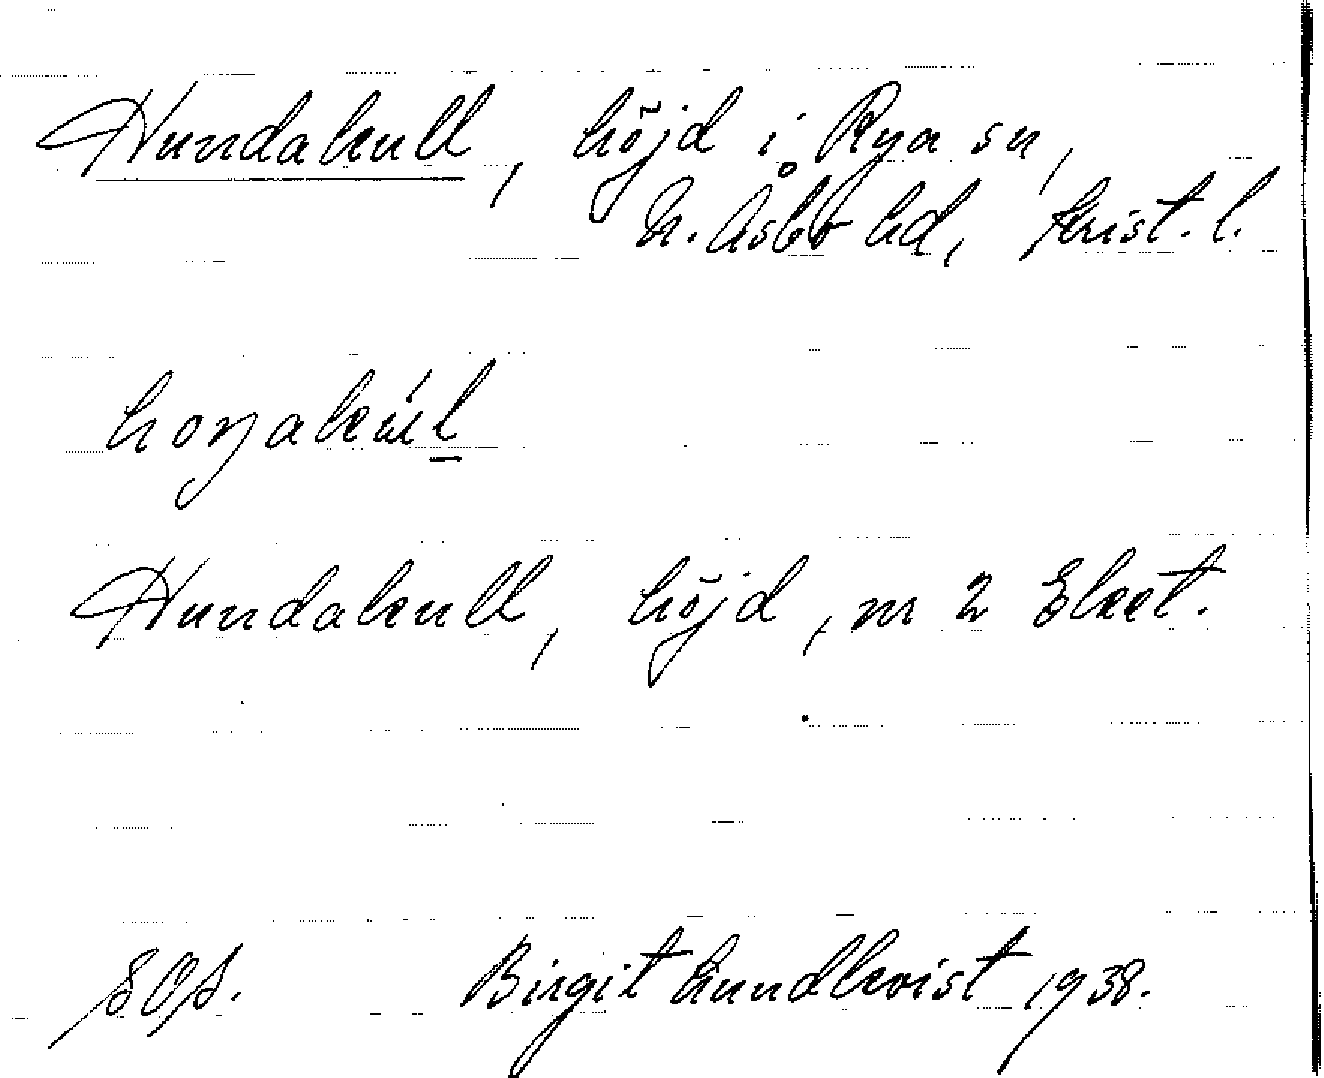 Hundakull, höjd i Rya sn,
N. Åsbo hd, Krist. l.
hoŋakúl
Hundakull, höjd, nr 2 Eket.
SOS. Birgit Lundkvist 1938.